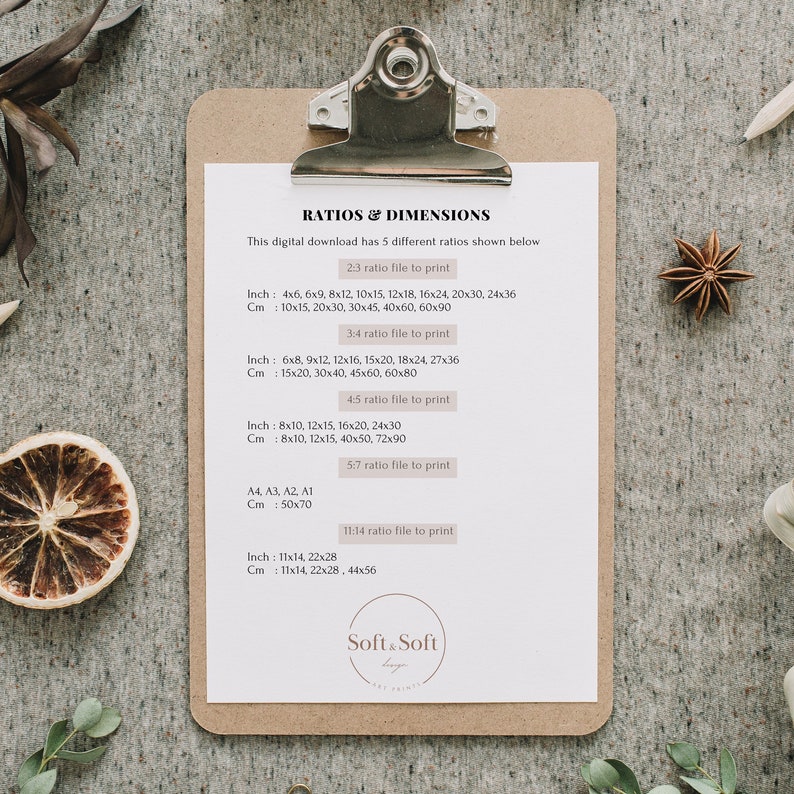 RATIOS & DIMENSIONS
This digital download has 5 different ratios shown below
2:3 ratio file to print
Inch : 4x6, 6x9, 8x12, 10x15, 12x18, 16x24, 20x30, 24x36
Cm : 10x15, 20x30, 30x45, 40x60, 60x90
3:4 ratio file to print
Inch : 6x8, 9x12, 12x16, 15x20, 18x24, 27x36
Cm : 15x20, 30x40, 45x60, 60x80
4:5 ratio file to print
Inch : 8x10, 12x15, 16x20, 24x30
Cm : 8x10, 12x15, 40x50, 72x90
5:7 ratio file to print
A4, A3, A2, A1
Cm : 50x70
11:14 ratio file to print
Inch : 11x14, 22x28
Cm : 11x14, 22x28 , 44x56
Soft & Soft
design
ART PRINTS